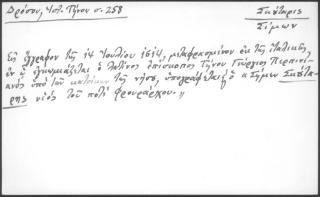 Δρόσου, Ἱστ. Τήνου σ. 258
Σκύταρις
Σίμων
Εἰς ἔγγραφον τῆς 14 Ἰουλίου 1614, μεταφρασμένον ἐκ τῆς ἰταλικῆς,
ἐν ᾧ ἐγκωμιάζεται ὁ λατῖνος ἐπίσκοπος Τήνου Γεώργιος Περπινι-
ανὸς ὑπὸ τῶν κατοίκων τῆς νήσου, ὑπογράφεται ὁ "Σίμων Σκύτα-
ρης υἱὸς τοῦ ποτὲ φρουράρχου."